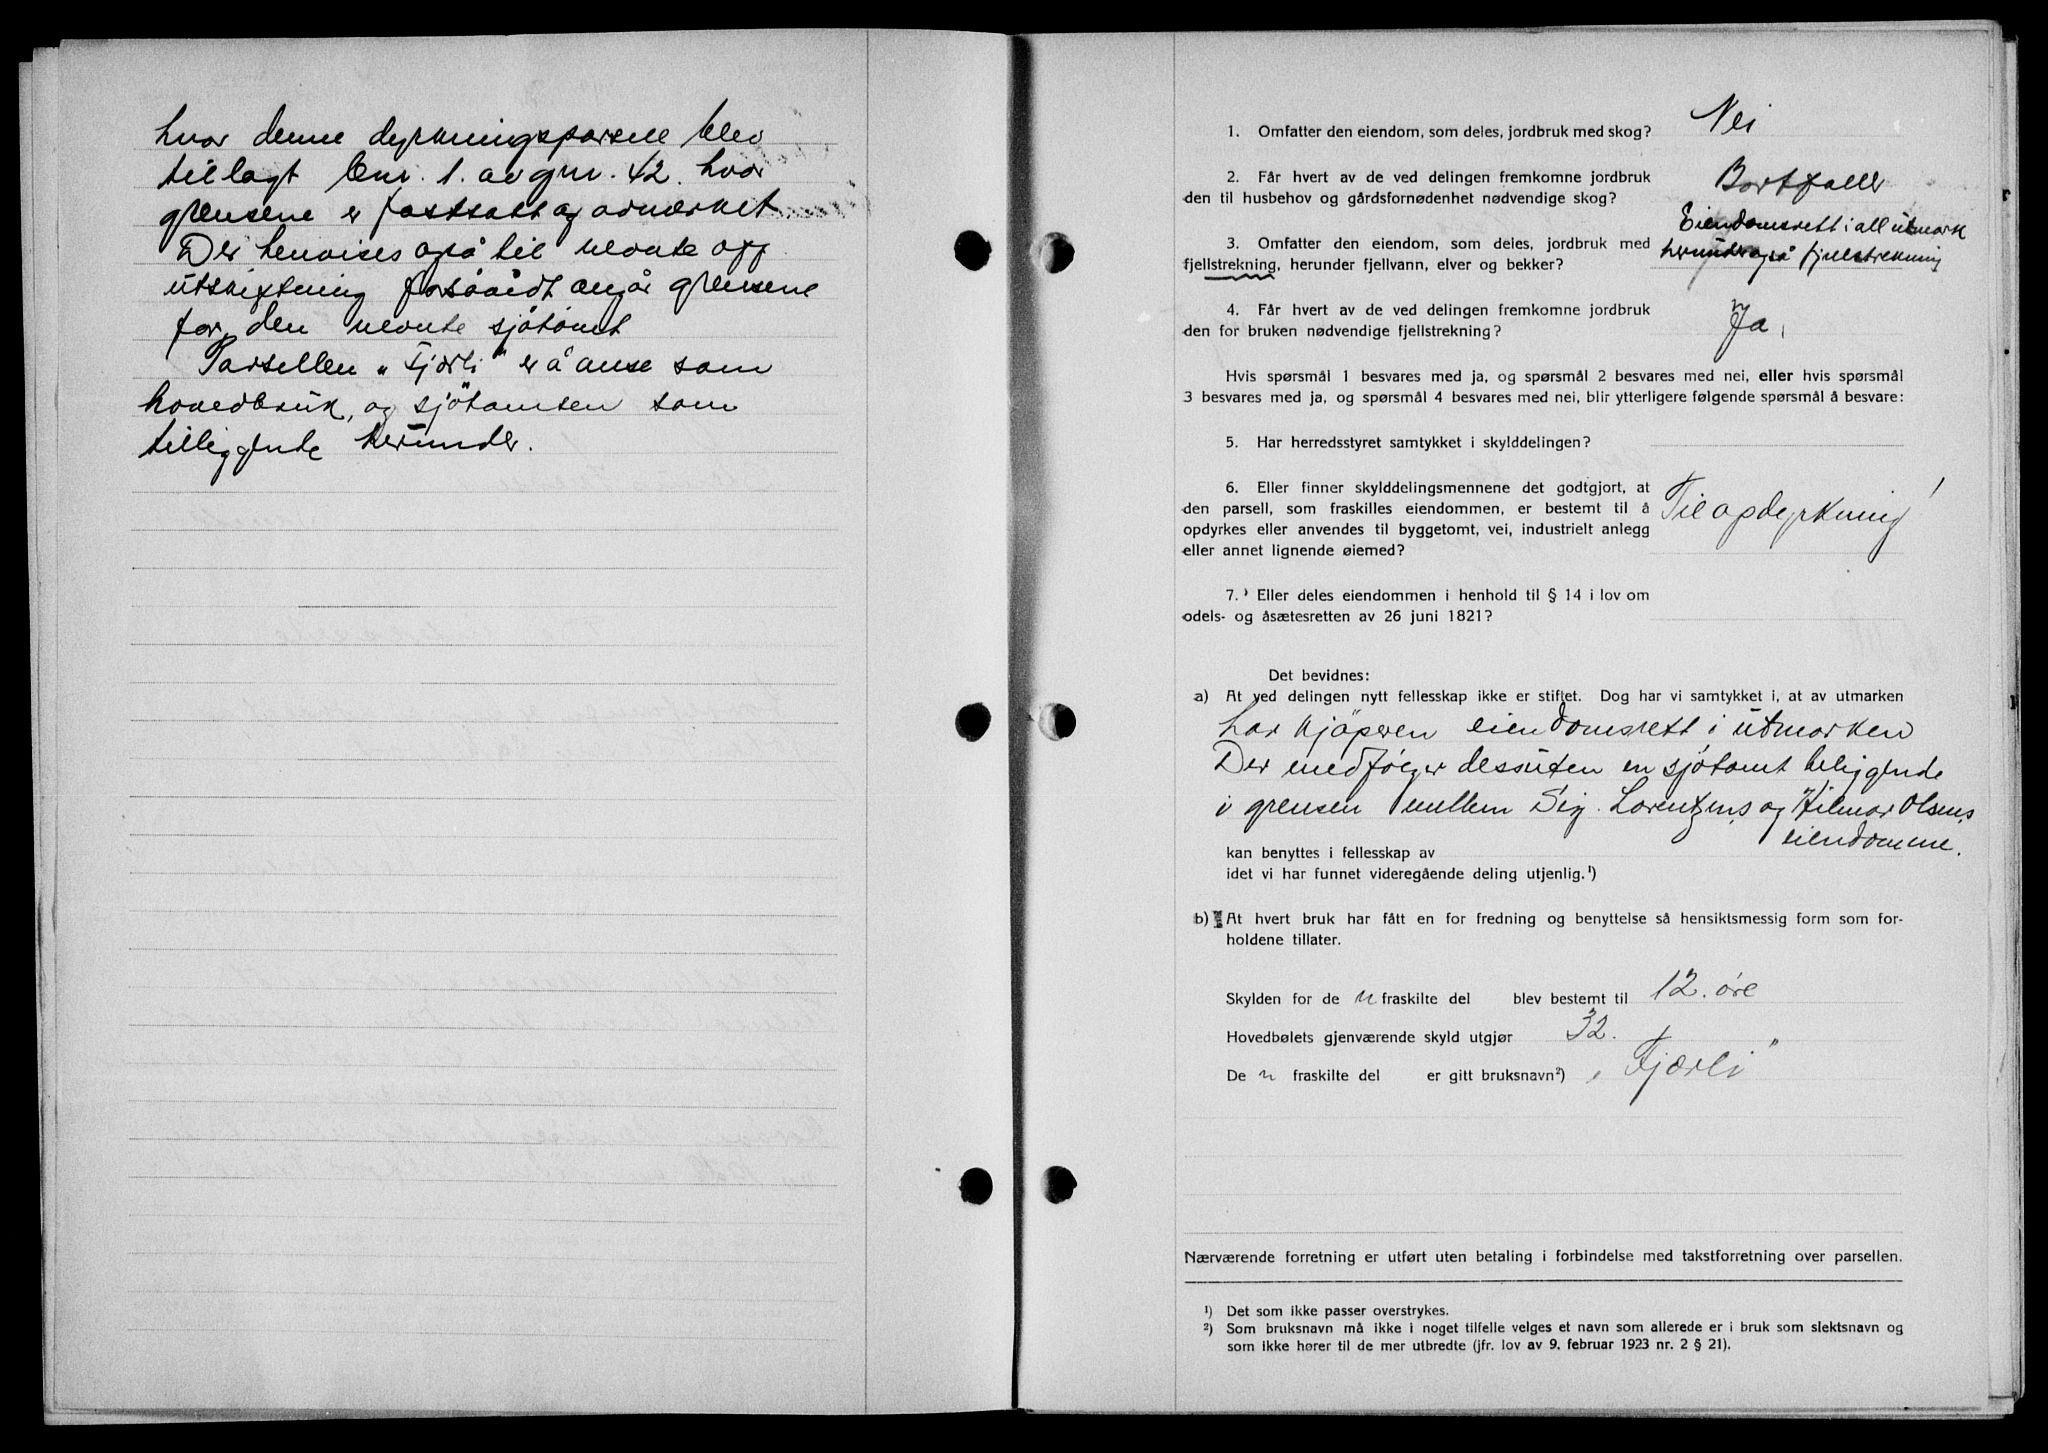 hvor denne dyrkningsparsell blev
tillagt bnr. 1. av gnr. 42. hvor
grensene er fastsatt og avmerket.
Der henvises også til nevnte off
utskiftning forsåvidt angår grensene
for den nevnte sjøtomt
Parsellen „Fjærli" er å anse som
hovedbruk, og sjøtomten som
tilliggende herunder.
1. Omfatter den eiendom, som deles, jordbruk med skog? Nei
2. Får hvert av de ved delingen fremkomne jordbruk
den til husbehov og gårdsfornødenhet nødvendige skog? Bortfaller
3. Omfatter den eiendom, som deles, jordbruk med
fjellstrekning, herunder fjellvann, elver og bekker?
Eiendomsrett i all utmark
herunder også fjellstrekning
4. Får hvert av de ved delingen fremkomne jordbruk
den for bruken nødvendige fjellstrekning? Ja,
Hvis spørsmål 1 besvares med ja, og spørsmål 2 besvares med nei, eller hvis spørsmål
3 besvares med ja, og spørsmål 4 besvares med nei, blir ytterligere følgende spørsmål å besvare:
5. Har herredsstyret samtykket i skylddelingen?
6. Eller finner skylddelingsmennene det godtgjort, at
den parsell, som fraskilles eiendommen, er bestemt til å
opdyrkes eller anvendes til byggetomt, vei, industrielt anlegg
eller annet lignende øiemed?
Til opdyrkning
7. Eller deles eiendommen i henhold til § 14 i lov om
odels- og åsætesretten av 26 juni 1821?
Det bevidnes:
a) At ved delingen nytt fellesskap ikke er stiftet. Dog har vi samtykket i, at av utmarken
har kjøperen eiendomsrett i utmarken
Der medfølger dessuten en sjøtomt beliggende
i grensen mellem Sig. Lorentzens og Hilmar Olsens
eiendomme.
kan benyttes i fellesskap av
idet vi har funnet videregående deling utjenlig.¹)
b) At hvert bruk har fått en for fredning og benyttelse så hensiktsmessig form som for-
holdene tillater.
Skylden for de n fraskilte del blev bestemt til 12. øre
Hovedbølets gjenværende skyld utgjør 32.
De n fraskilte del er gitt bruksnavn²) „Fjærli"
Nærværende forretning er utført uten betaling i forbindelse med takstforretning over parsellen.
¹) Det som ikke passer overstrykes.
²) Som bruksnavn må ikke i noget tilfelle velges et navn som allerede er i bruk som slektsnavn og
som ikke hører til de mer utbredte (jfr. lov av 9. februar 1923 nr. 2 § 21).